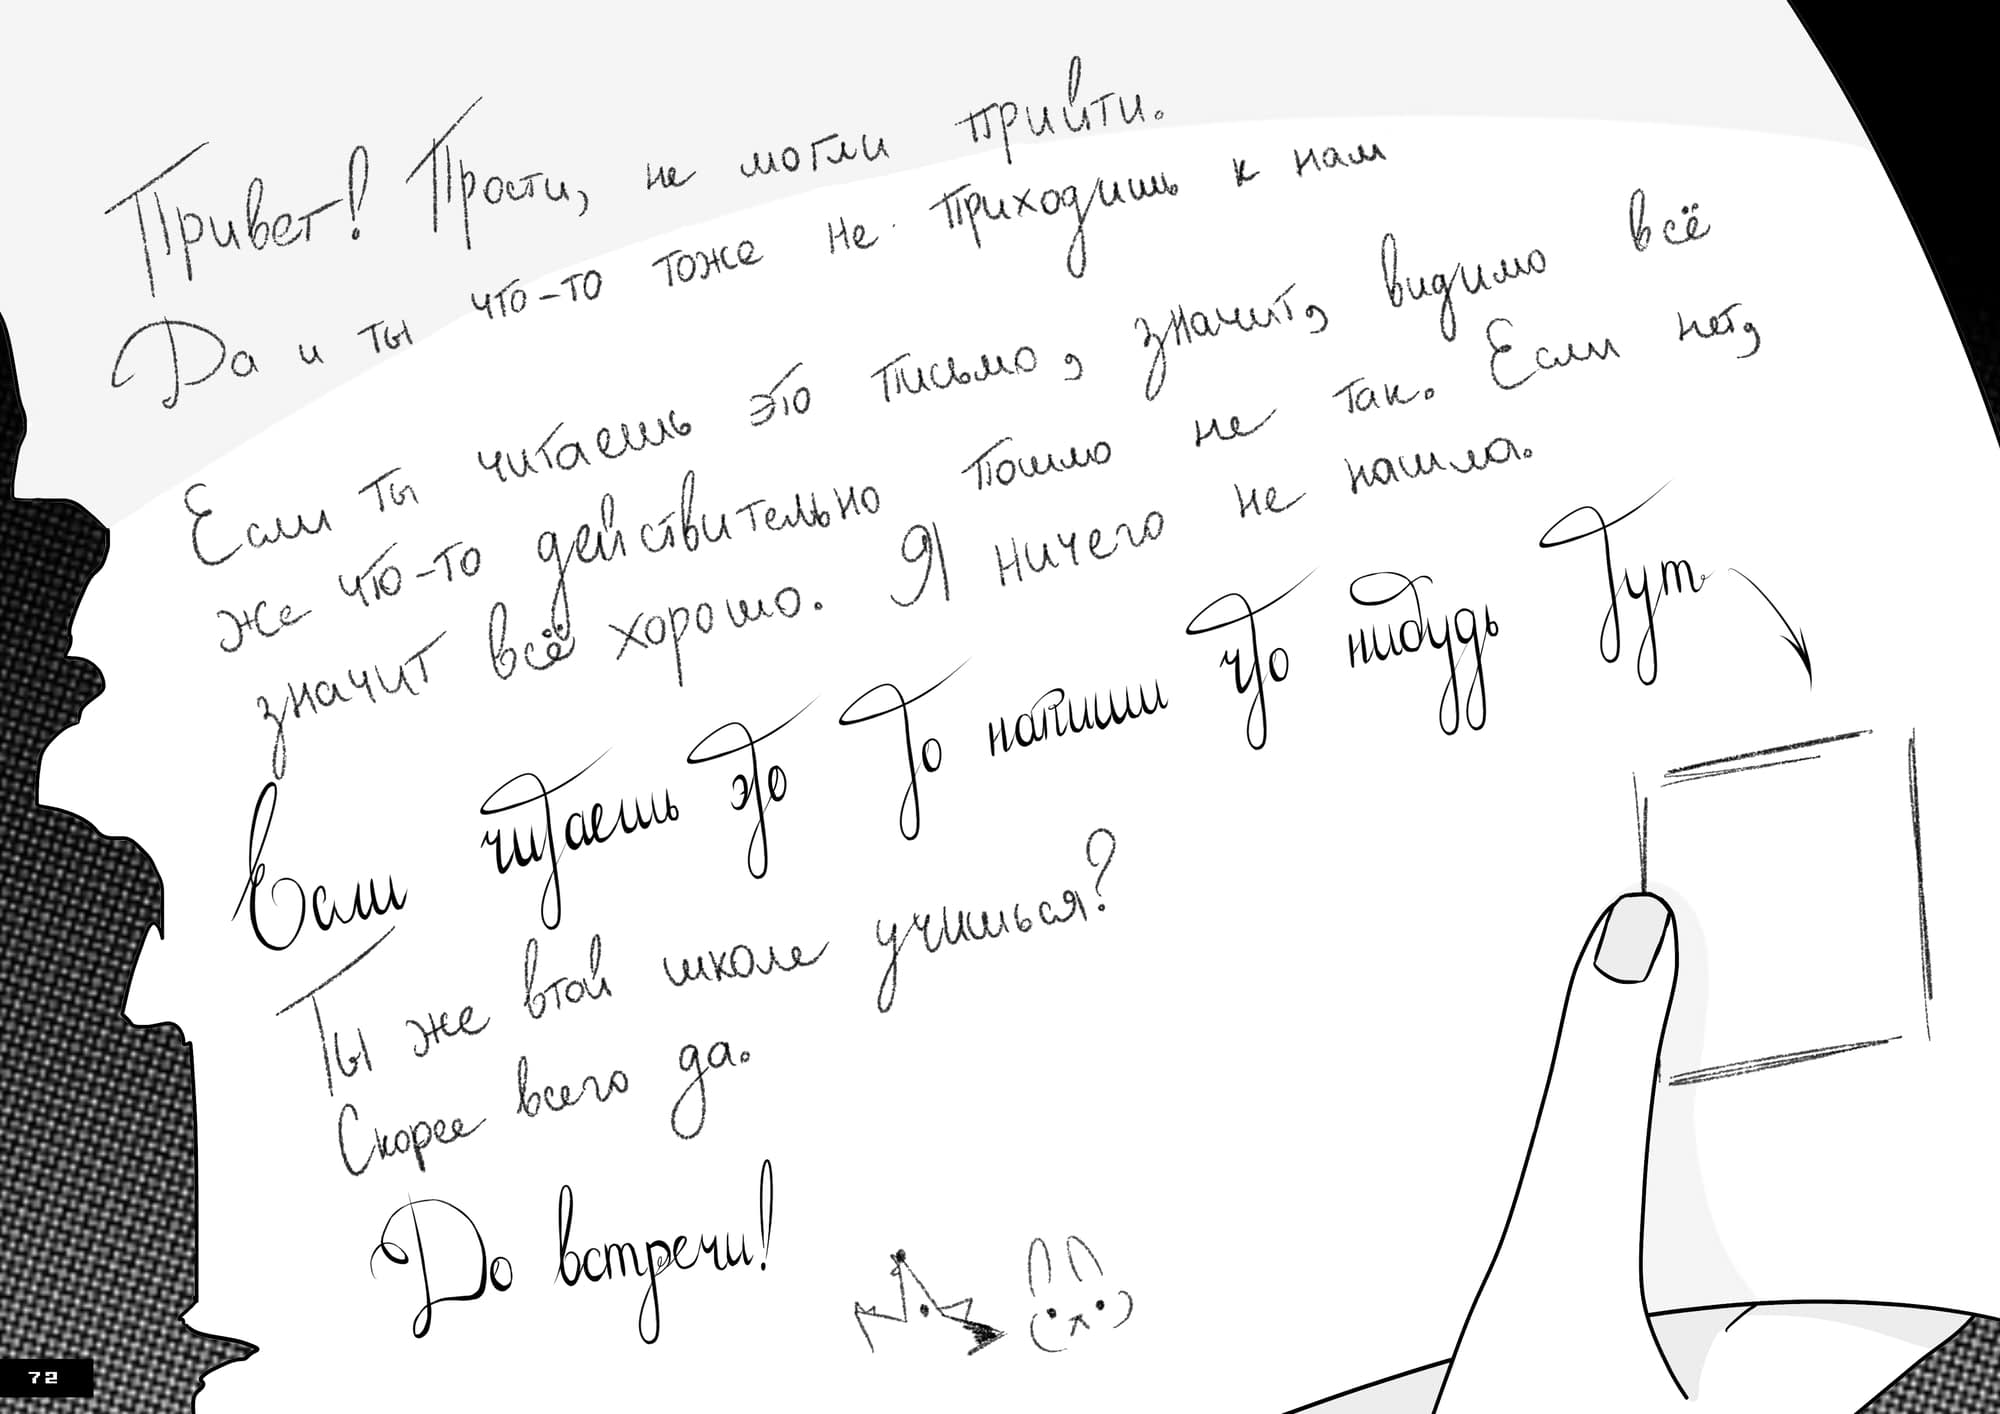 Привет! Прости, не могли прийти.
Да и ты что-то тоже не приходишь к нам
Если ты читаешь это письмо, значит, видимо всё
же что-то действительно пошло не так. Если нет,
значит всё хорошо. Я ничего не нашла.
Если читаешь это то напиши что нибудь тут
Ты же втой школе учишься?
Скорее всего да.
До встречи!
72